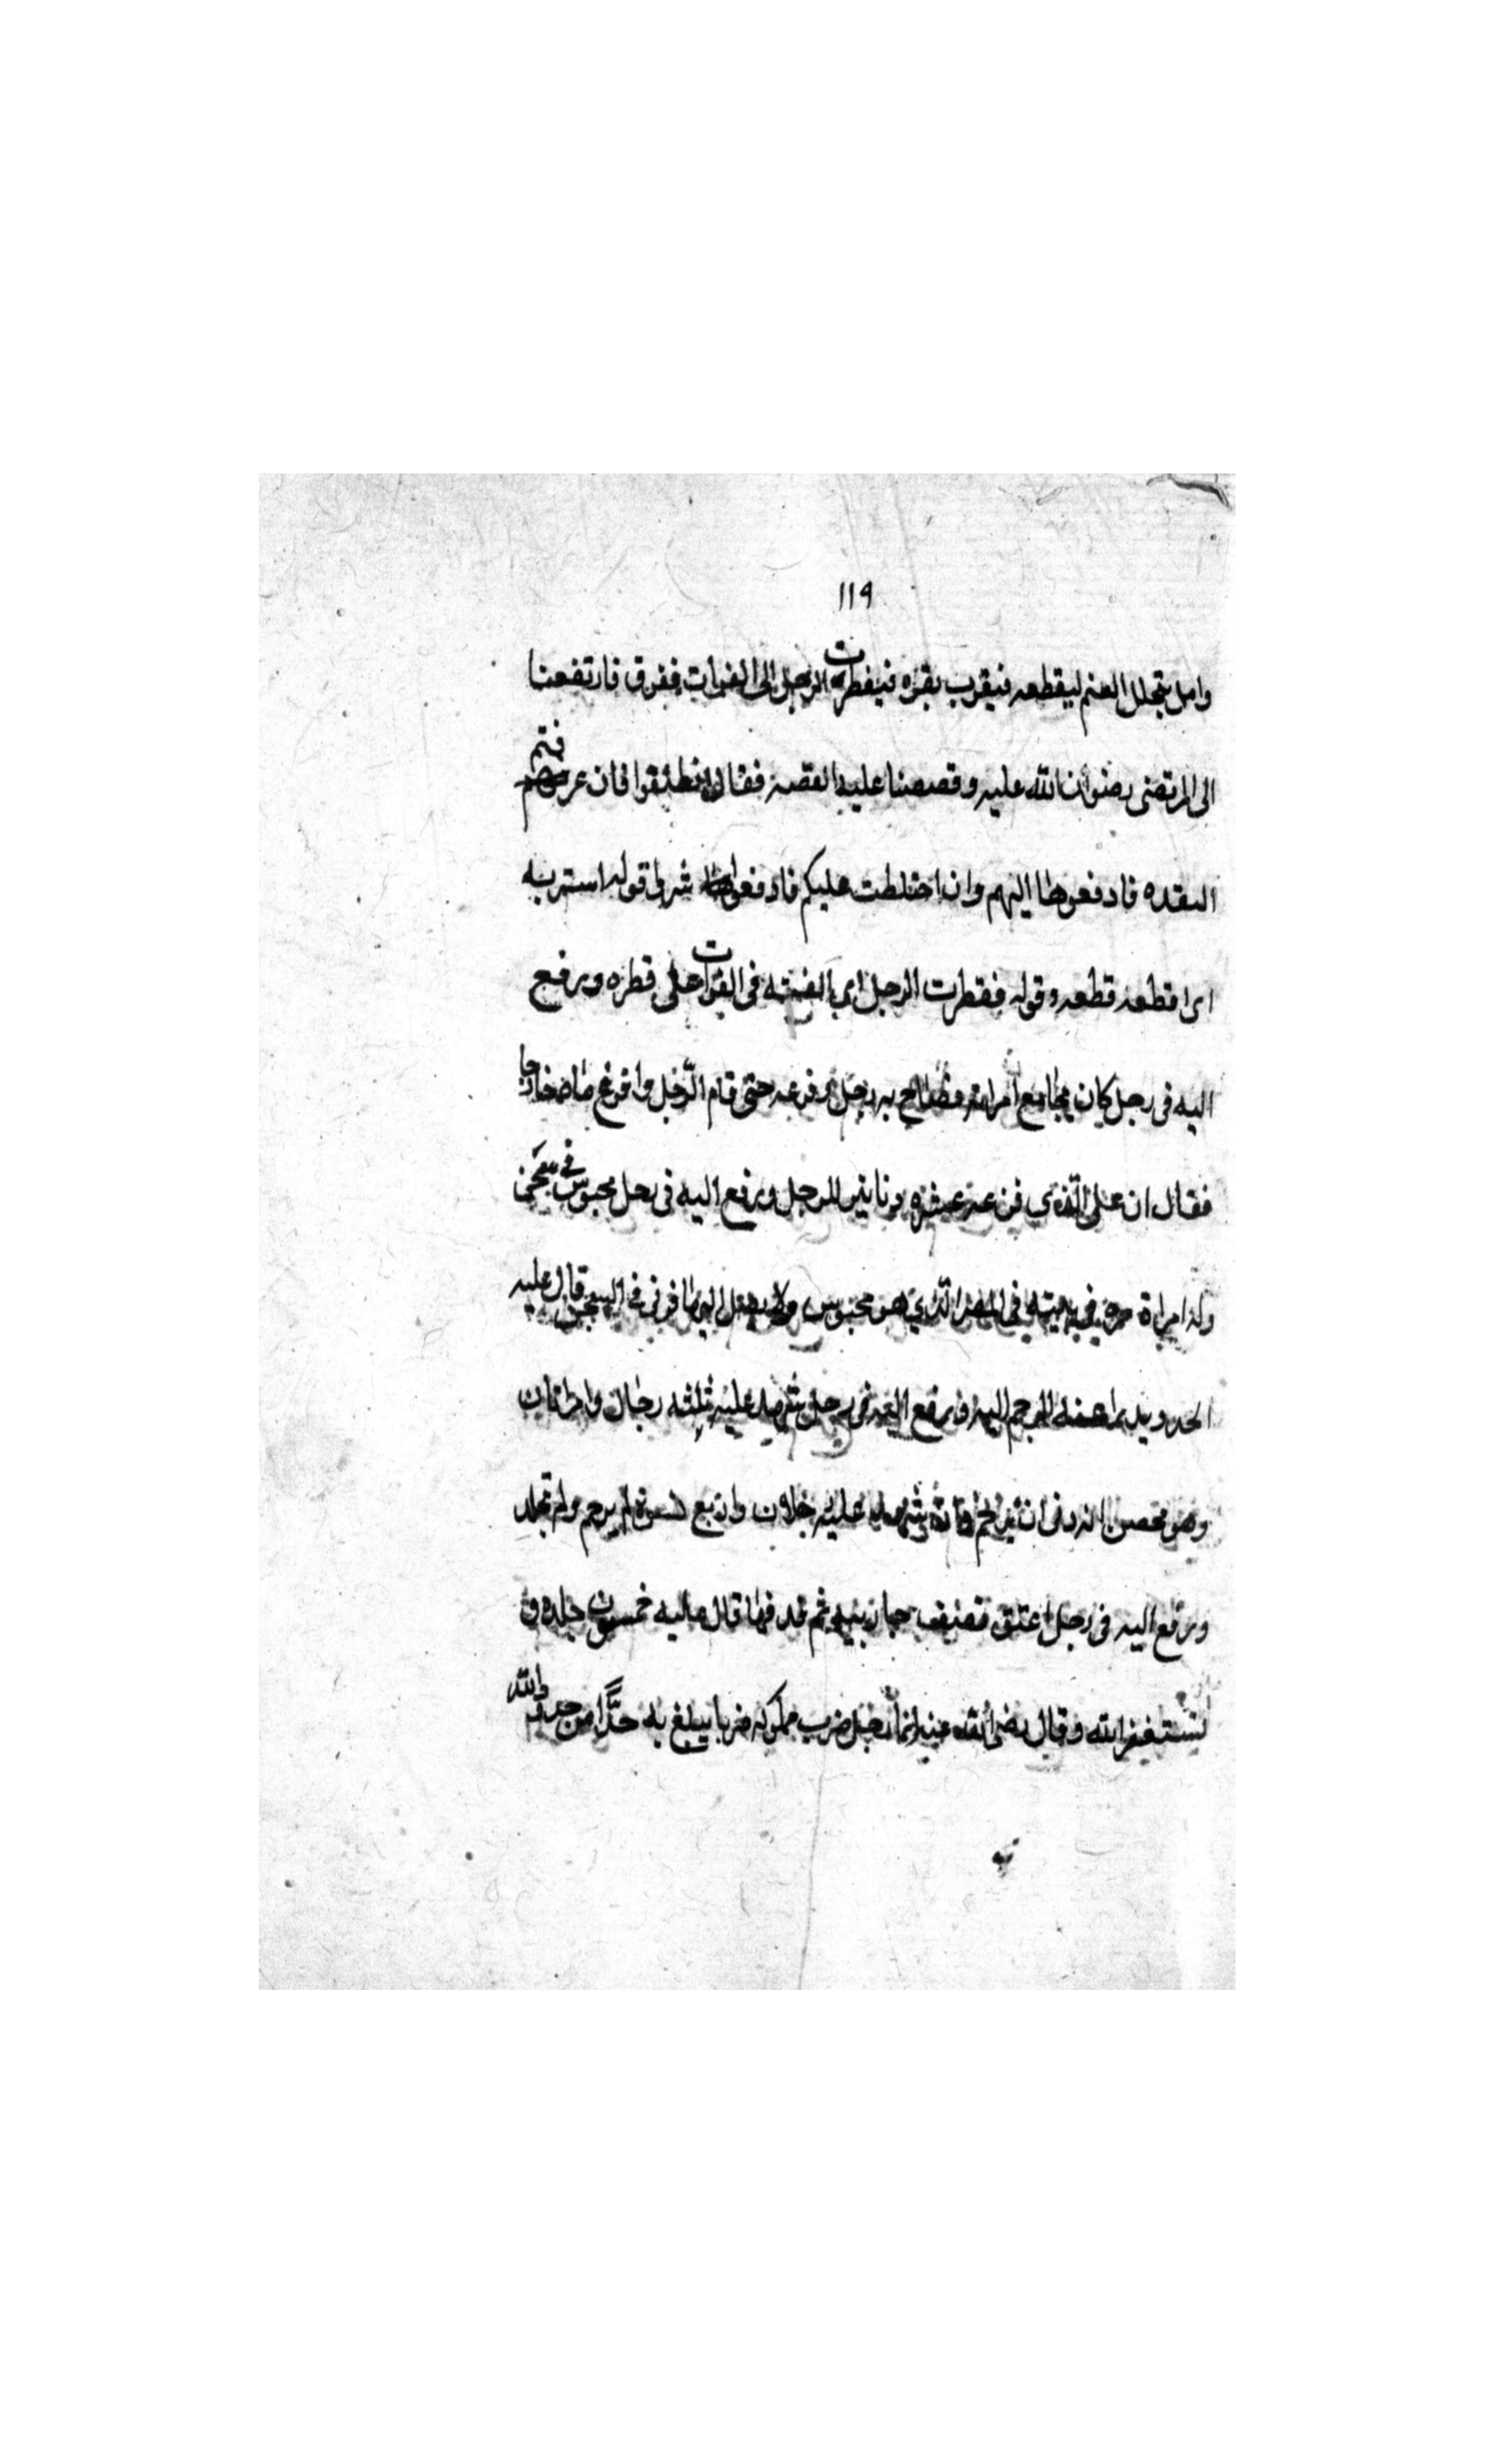 ١١٩
وامل يتخلل الغنم ليقطعه فيقرب بقره فيقطرت الرجل الى الفرات فغرق فارتفعنا
الى المرتضى رضوان الله عليه وقصصنا عليه القصة فقال انطلقوا فان عرفتم
النقده فادفعوها اليهم وان اختلطت عليكم فادفعوا شرواقوله استربه
اى اقطعه قطعه وقوله فقطرت الرجل اى القته فى الفرات على قطره ورفع
اليه فى رجل كان يجامع امراته فصاح به رجل وفزعه حتى قام الرجل وافرغ ماءه خارجا
فقال ان على الذى فزعه عشره دنانير للرجل ورفع اليه فى رجل محبوس فى سجن
وله امراة حره فى بيته فى المصر الذي هو محبوس ولا يصل اليها فزنى فى السجن قال عليه
الحد ويدرا عنه الرجم اليه ورفع اليه فى رجل شهد عليه ثلثه رجال وامراتان
وهو محصن انه زنى ان يرجم فان شهد عليه رجلان واربع نسوة لم يرجم ولم يجلد
ورفع اليه فى رجل اعتق نصف جاريته ثم قذفها قال عليه خمسون جلده و
يستغفر الله وقال رضى الله عنه ايما رجل ضرب مملوكه ضربا يبلغ به حدا من حدود الله